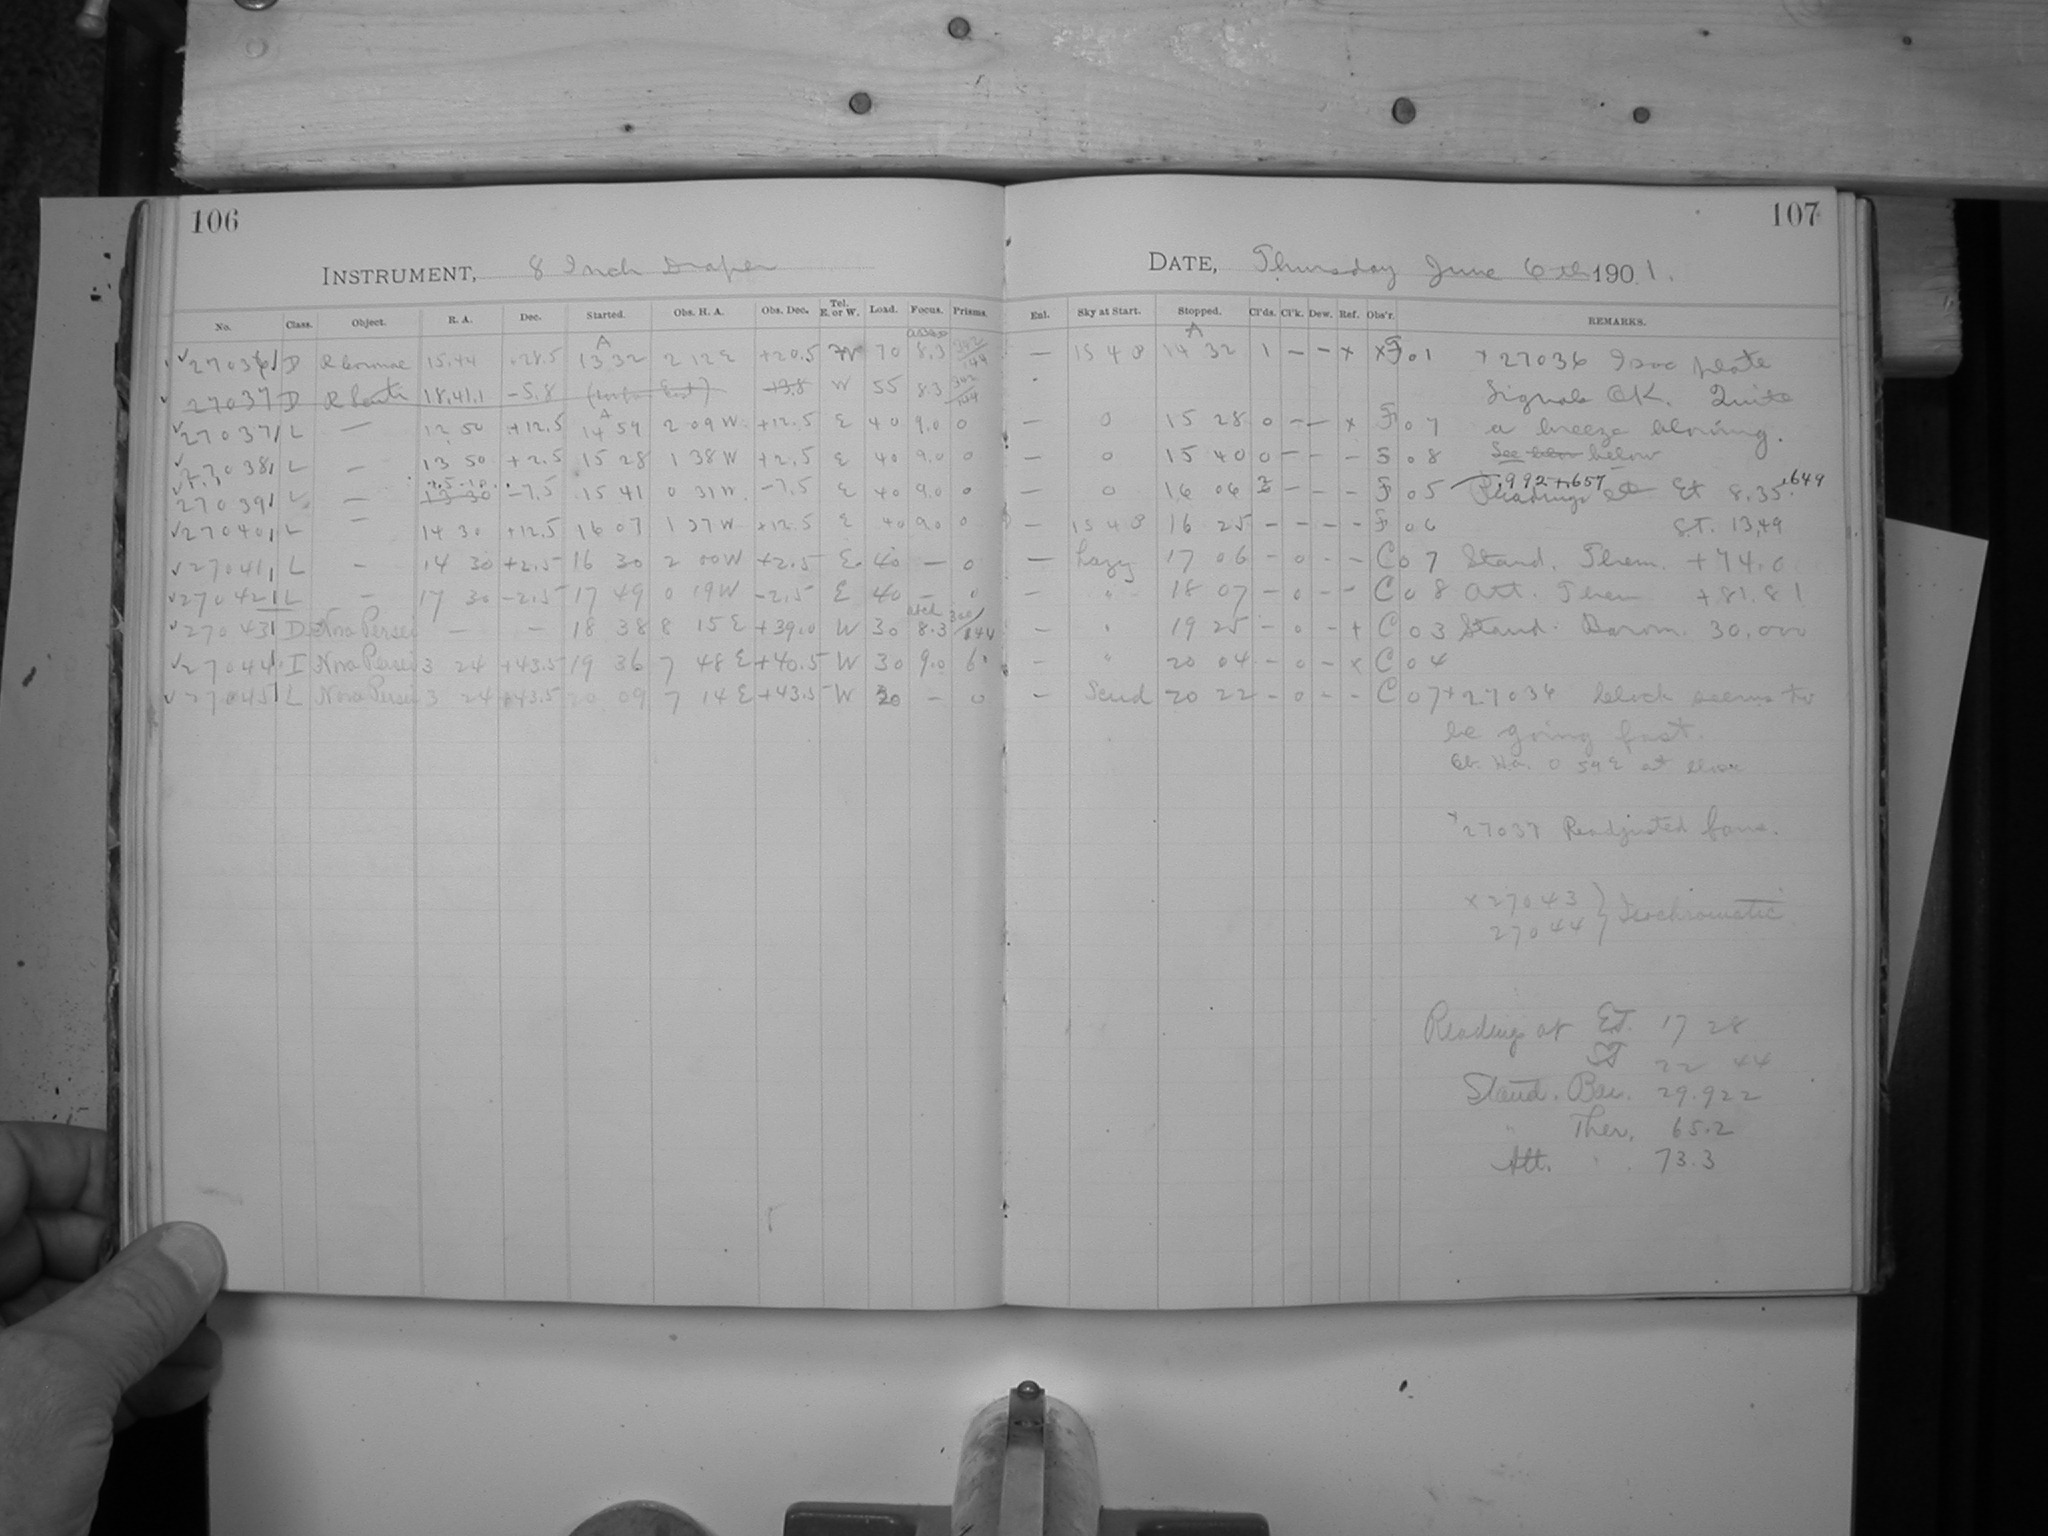 106
107
INSTRUMENT, 8 Inch Draper
DATE, Thursday June 6th 1901.
No. Class. Object. R. A. Dec. Started. Obs. H. A. Obs. Dec. Tel. E. or W. Load. Focus. Prisms. Enl. Sky at Start. Stopped. Cl'ds. Cl'k. Dew. Ref. Obs'r. REMARKS.
27036 D R Coronae 15.44 +28.5 13 32 2 12 E +20.5 W 70 8.3 — 1548 14 32 1 — — x F 01 x27036 Isoc plate
27037 D R Scuti 18,41.1 -5.8 +3.8 W 55 8.3 Signals OK. Quite
27037 L — 12 50 +12.5 14 59 2 09 W +12.5 E 40 9.0 0 — 0 15 28 0 — — x F 07 a breeze blowing.
27038 L — 13 50 +2.5 15 28 1 38 W +2.5 E 40 9.0 0 — 0 15 40 0 — — — 08 See below below
27039 L — 13 30 -7.5 15 41 0 31 W -7.5 E 40 9.0 0 — 0 16 06 — — — F 05 Readings Et 8.35
27040 L — 14 30 +12.5 16 07 1 37 W +12.5 E 40 9.0 0 — 1548 16 25 — — — — F 06 S.T. 13,49
27041 L — 14 30 +2.5 16 30 2 00 W +2.5 E 40 — 0 — hazy 17 06 — 0 — — C 07 Stand. Therm. +74.0
27042 L — 17 30 -2.5 17 49 0 19 W -2.5 E 40 — 0 — " 18 07 — 0 — — C 08 Att. Therm +81.81
27043 D Nova Persei — — 18 38 8 15 E +39.0 W 30 8.3 — " 19 25 — 0 — + C 03 Stand. Barom. 30.000
27044 I Nova Persei 3 24 +43.5 19 36 7 48 E +40.5 W 30 9.0 6 — " 20 04 — 0 — x C 04
27045 L Nova Persei 3 24 +43.5 20 09 7 14 E +43.5 W 20 — 0 — Seud 20 22 — 0 — — C 07 +27036 Clock seems to
be going fast.
0 59 E at close
x27037 Readjusted fans.
x27043 } Isochromatic
27044
Readings at E.T. 17 28
ST 22 44
Stand. Bar. 29.922
" Ther, 65.2
Att. " 73.3